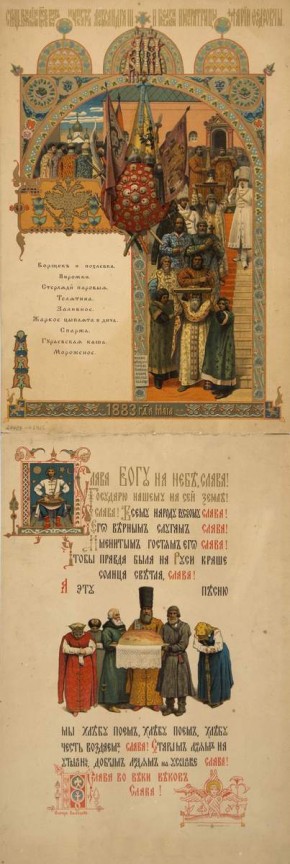 Александра III и Императрицы Маріи Ѳеодоровны
Борщокъ и похлебка.
Пирожки.
Стерляди паровыя.
Телятина.
Заливное.
Жаркое цыплята и дичь.
Спаржа.
Гурьевская каша.
Мороженое.
1883 Мая
Слава Богу на небѣ, слава!
Государю нашему на сей землѣ!
Слава! Всему народу слава!
Его вѣрнымъ слугамъ слава!
Именитымъ гостямъ его слава!
Чтобы правда была на Руси краше
солнца свѣтла, слава!
А эту пѣсню
мы хлѣбу поемъ, хлѣбу поемъ, хлѣбу
честь воздаемъ слава! Старымъ людямъ на
добрымъ людямъ на слава!
Слава во вѣки вѣковъ
Слава!